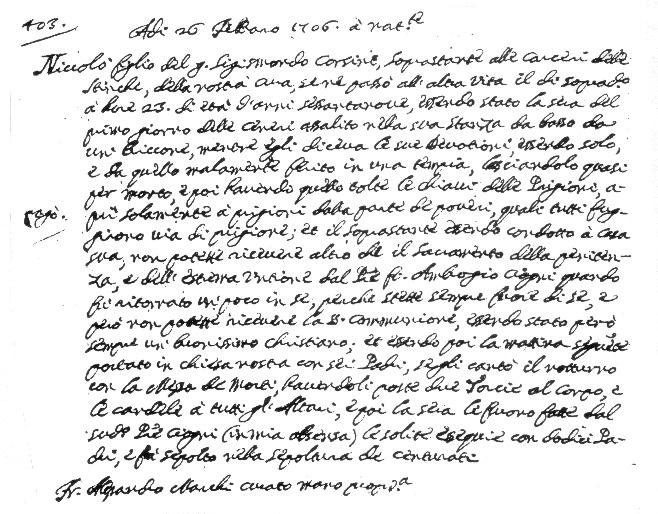 403.
Adi 26 Febbraio 1706. à nat.te
Niccolò figlio del q. Sigismondo Corsini, soprastante alle Carceri delle
Stinche, della nostra Cura, se ne passò all'altra vita il dì sopradº
à hore 23. di età d'anni sessantanove, essendo stato la sera del
primo giorno delle Ceneri assalito nella sua stanza da basso da
un Briccone, mentre egli diceva le sue Devotioni, essendo solo,
e da quello malamente ferito in una tempia, lasciandolo quasi
per morto, e poi havendo quello tolte le chiavi delle Prigioni, a-
prì solamente à prigioni dalla parte de poveri, quali tutti fug-
pagò.
girono via di prigione; et il soprastante essendo condotto à Casa
sua, non potette ricevere altro che il Sacramento della peniten-
za, e dell'estrema Untione dal Pre fr. Ambrogio Cigni quando
fù ritornato un poco in se, perche stette sempre fuori di se, e
però non potette ricevere la S. Communione, essendo stato però
sempre un buonissimo christiano; et essendo poi la matina seguete
portato in chiesa nostra con sei Padri, segli cantò il notturno
con la Messa de Morti, havendoli poste due Torcie al Corpo, e
le candele à tutti gl'Altari, e poi la sera le furono fatte dal
sudº Pre Cigni (in mia absenza) le solite esequie con dodici Pa-
dri, e fù sepolto nella sepoltura de Centurati
Fr. Alessandro Marchi curato mano propª